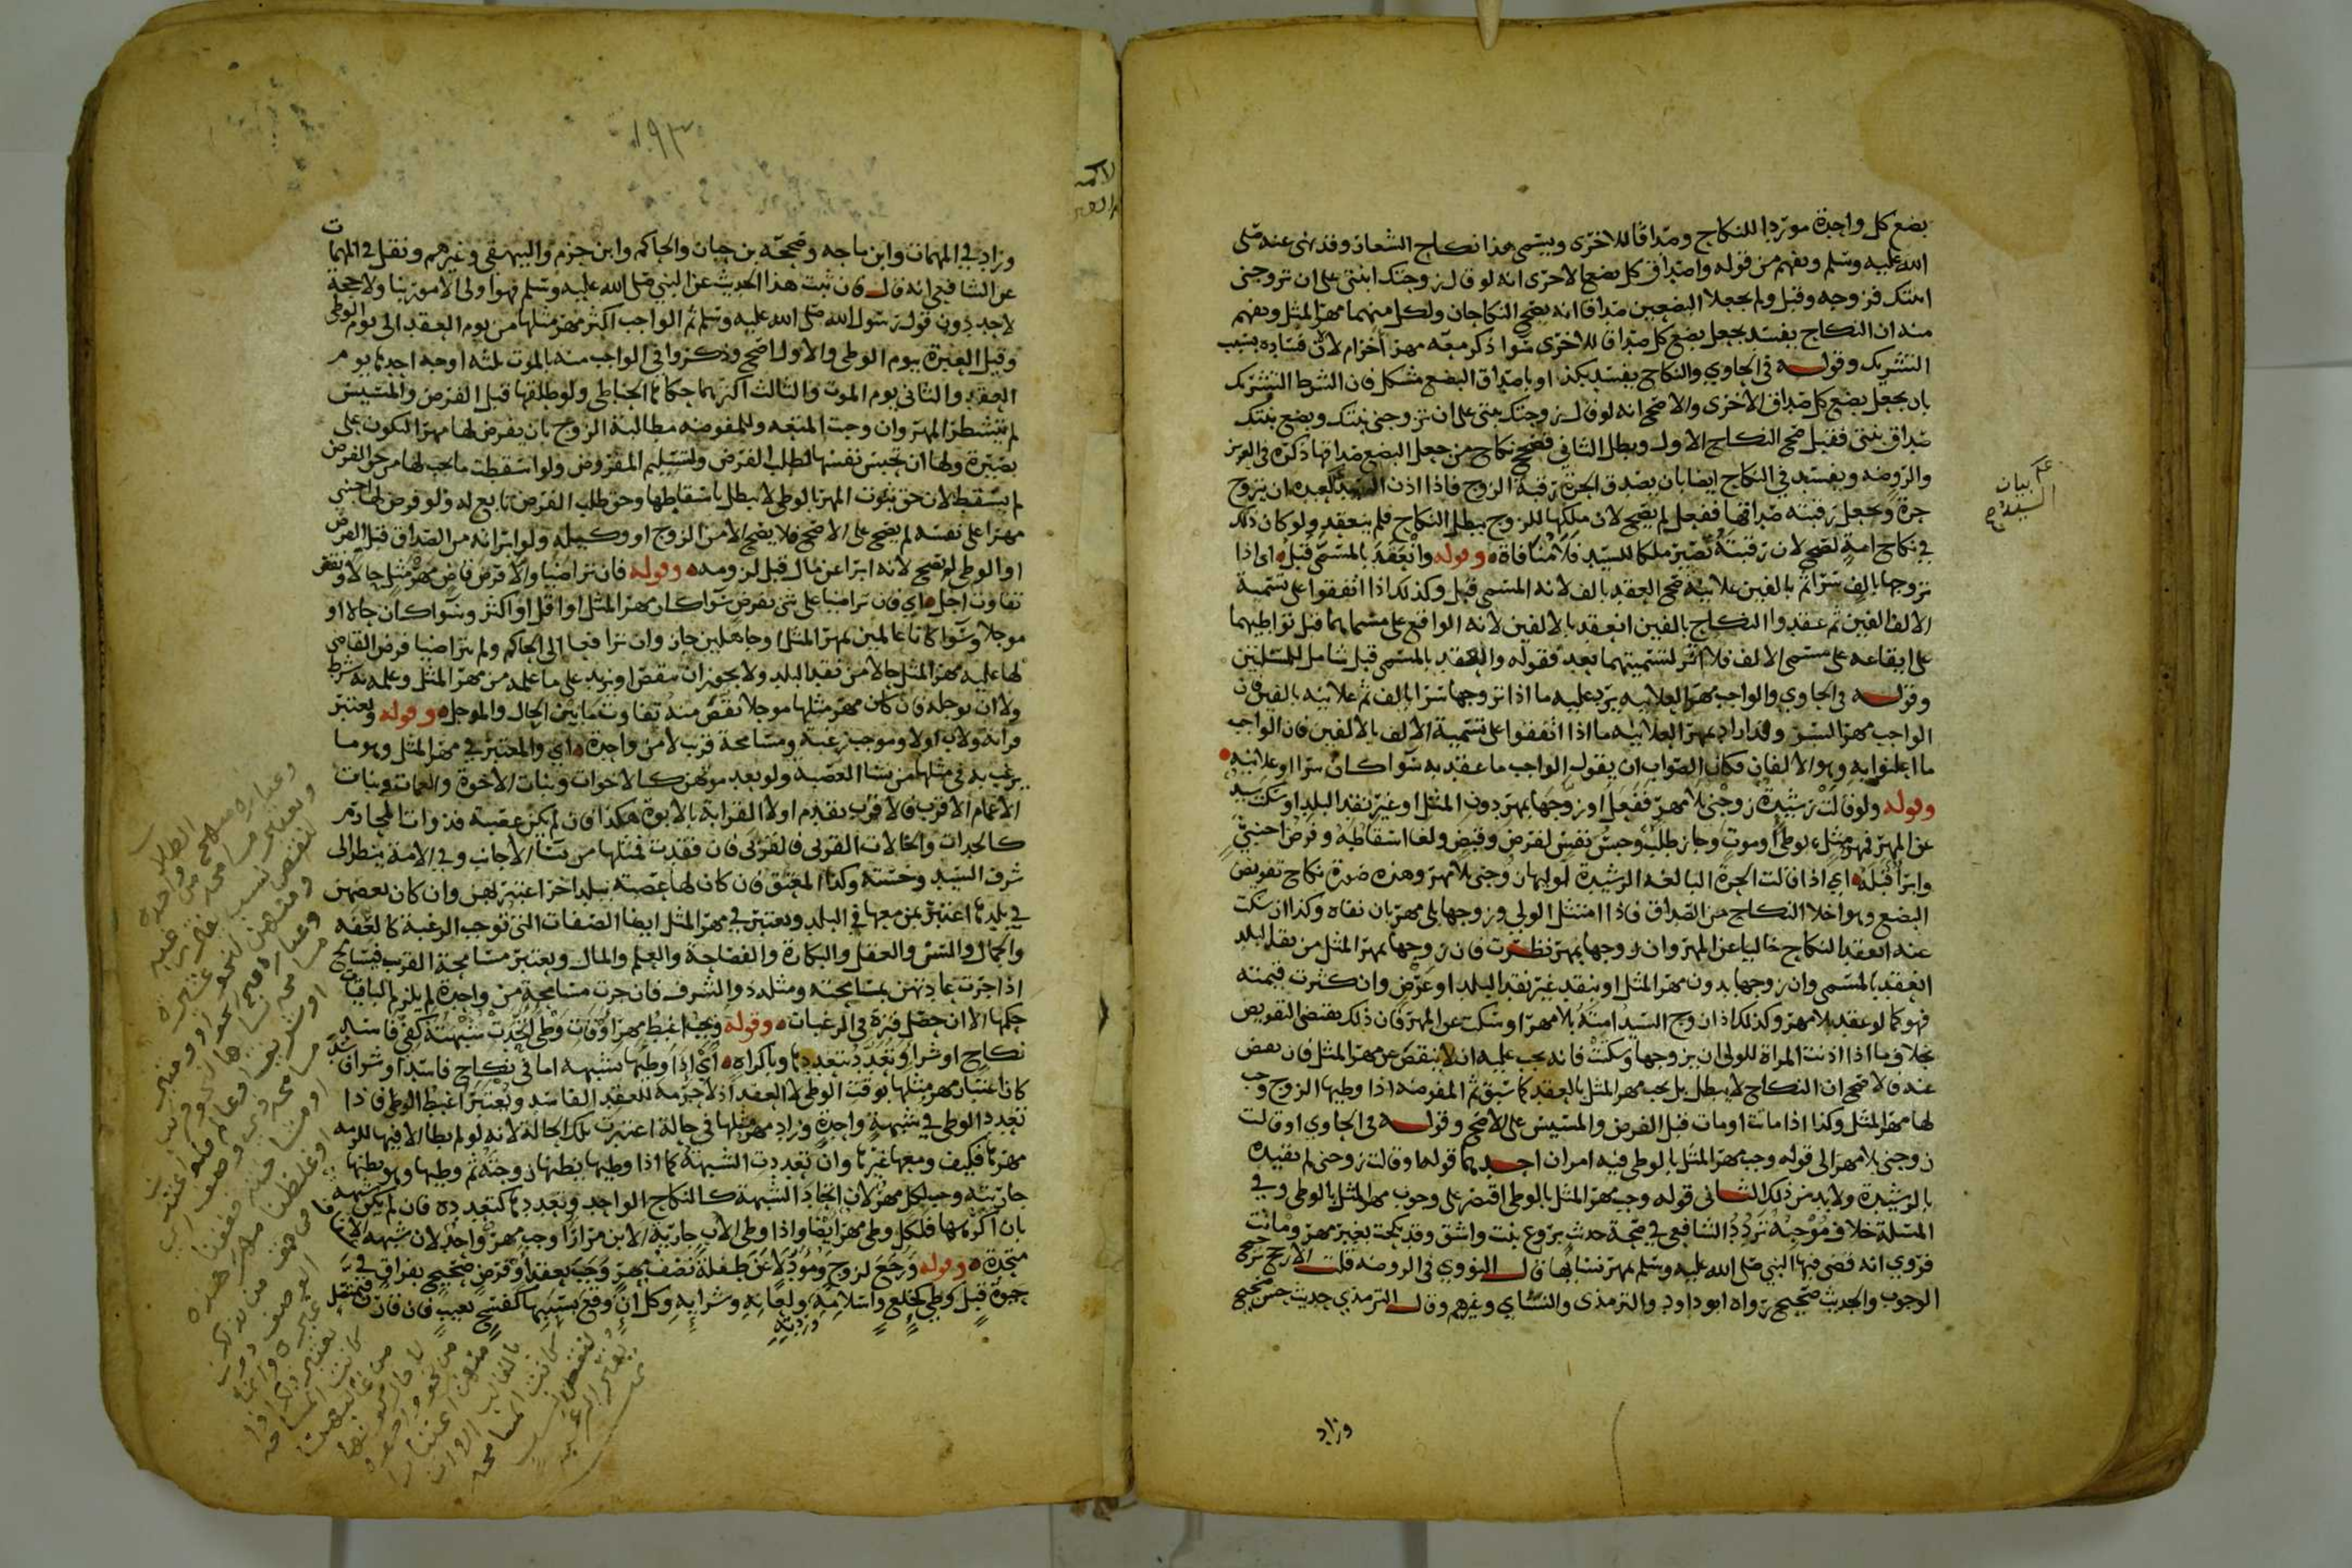 بضع كل واحدة موردا للنكاح وصداقا للاخرى ويسمى هذا نكاح الشغار وقد نهى عنه صلى
الله عليه وسلم ويفهم من قوله واصداق كل بضع الاخرى انه لو قال زوجتك ابنتي على ان تزوجني
ابنتك فزوجه وقبل ولم يجعلا البضعين صداقا انه يصح النكاحان ولكل منهما مهر المثل ويفهم
منه ان النكاح يفسد بجعل بضع كل صداق للاخرى سوا ذكر معه مهر اخر ام لا لان فساده بسبب
التشريك وقوله في الحاوي والنكاح يفسد بكذا او باصداق البضع مشكل فان الشرط التشريك
بان يجعل بضع كل صداق الاخرى والاصح انه لو قال زوجتك بنتي على ان تزوجني بنتك وبضع بنتك
صداق بنتي فقبل صح النكاح الاول وبطل الثاني فصح نكاح من جعل البضع صداقها ذكره في العزيز
والروضه ويفسد في النكاح ايضا بان يصدق الحرة رقبة الزوج فاذا اذن السيد لعبده ان يتزوج
حرة ويجعل رقبته صداقها ففعل لم يصح لان ملكها للزوج يبطل النكاح فلم ينعقد ولو كان ذلك
في نكاح امة لصح لان رقبته تصير ملكا للسيد فلا منافاة وقوله وانعقد بالمسمى قبل اي اذا
تزوجها بالف سرا ثم بالفين علانيه صح العقد بالف لانه المسمى قبل وكذلك اذا اتفقوا على تسمية
الالف الفين ثم عقدوا النكاح بالفين انعقد بالالفين لانه الواقع على مسماهما قبل تواطيهما
على ايقاعه على مسمى الالف فلا اثر لتسميتهما بعد فقوله والعقد بالمسمى قبل شامل للمسلتين
وقوله في الحاوي والواجب مهر العلانيه يرد عليه ما اذا تزوجها سرا بالف ثم علانيه بالفين فان
الواجب مهر السر وقد اراد بمهر العلانيه ما اذا اتفقوا على تسمية الالف بالالفين فان الواجب
ما اعلنوا به وهو الالفان فكان الصواب ان يقول الواجب ما عقد به سوا كان سرا او علانيه
وقوله ولو قالت رشيدة زوجني بلا مهر ففعل او زوجها بمهر دون المثل او غير نقد البلد او سكت سيد
عن المهر فمهر مثل بوطي او موت وجاز طلبه وحبس نفس لفرض وقبض ولغا اسقاطه وفرض اجنبي
وابرا قبله اي اذا قالت الحرة البالغه الرشيدة لوليها زوجني بلا مهر وهذه صورة نكاح تفويض
البضع وهو اخلا النكاح من الصداق فاذا امتثل الولي وزوجها بلا مهر بان نفاه وكذا ان سكت
عنه انعقد النكاح خاليا عن المهر وان زوجها بمهر نظرت فان زوجها بمهر المثل من نقد البلد
انعقد بالمسمى وان زوجها بدون مهر المثل او بنقد غير نقد البلد او عرض وان كثرت قيمته
فهو كما لو عقد بلا مهر وكذلك اذا زوج السيد امته بلا مهر او سكت عن المهر فان ذلك يقتضي التفويض
بخلاف ما اذا اذنت المراة للولي ان يزوجها وسكتت فانه يجب عليه ان لا ينقص عن مهر المثل فان نقص
عنه فالاصح ان النكاح لا يبطل بل يجب مهر المثل بالعقد كما سبق ثم المفوضه اذا وطيها الزوج وجب
لها مهر المثل وكذا اذا ماتت او مات قبل الفرض والمسيس على الاصح وقوله في الحاوي او قالت
زوجني بلا مهر الى قوله وجب مهر المثل بالوطي فيه امران احدهما قوله او قالت زوجني لم تقيده
بالرشيدة ولا بد من ذلك الثاني قوله وجب مهر المثل بالوطي اقتصر على وجوب مهر المثل بالوطي وفي
المسلة خلاف موجبه تردد الشافعي في صحة حديث بروع بنت واشق وقد نكحت بغير مهر وماتت
فروي انه قضى فيها النبي صلى الله عليه وسلم بمهر نسائها قال النووي في الروضه قلت الارجح ترجيح
الوجوب والحديث صحيح رواه ابو داود والترمذي والنساي وغيرهم وقال الترمذي حديث حسن صحيح
وزاد
بيان
السيد
١٩٣
وزاد في المهمات وابن ماجه وصححه بن حبان والحاكم وابن حزم والبيهقي وغيرهم ونقل في المهمات
عن الشافعي انه قال فان ثبت هذا الحديث عن النبي صلى الله عليه وسلم فهو اولى الامور بنا ولا حجة
لاحد دون قول رسول الله صلى الله عليه وسلم ثم الواجب اكثر مهر مثلها من يوم العقد الى يوم الوطي
وقيل العبرة بيوم الوطي والاول اصح وذكروا في الواجب منه بالموت ثلثه اوجه احدها يوم
العقد والثاني يوم الموت والثالث اكثرهما حكاها الحناطي ولو طلقها قبل الفرض والمسيس
لم يتشطر المهر وان وجبت المتعه وللمفوضه مطالبة الزوج بان يفرض لها مهرا لتكون على
بصيرة ولها ان تحبس نفسها لطلب الفرض ولتسليم المفروض ولو اسقطت ما يجب لها من حق الفرض
لم يسقط لان حق ثبوت المهر بالوطي لا يبطل باسقاطها وحق طلب الفرض تابع له ولو فرض لها اجنبي
مهرا على نفسه لم يصح على الاصح فلا يصح الا من الزوج او وكيله ولو ابرانه من الصداق قبل الفرض
او الوطي لم يصح لانه ابرا عن مال قبل لزومه وقوله فان تراضيا والا فرض قاض مهر مثل حالا ونقص
تفاوت اجل اي فان تراضيا على شي بفرض سوا كان مهر المثل او اقل او اكثر وسوا كان حالا او
موجلا وسوا كانا عالمين بمهر المثل او جاهلين جاز وان ترافعا الى الحاكم ولم يتراضيا فرض القاضي
لها عليه مهر المثل حالا من نقد البلد ولا يجوز ان ينقص او يزيد على ما علمه من مهر المثل وعلمه به شرط
ولا ان يوجله فان كان مهر مثلها موجلا نقص منه تفاوت ما بين الحال والموجل وقوله ويعتبر
قرابة ولاب اولا وموجب رغبة ومسامحة قرب لا من واحدة اي والمعتبر في مهر المثل وهو ما
يرغب به في مثلها من نسا العصبة ولو بعد موتهن كالاخوات وبنات الاخوة والعمات وبنات
الاعمام الاقرب فالاقرب يقدم اولا القرابة بالابوة هكذا فان لم يكن عصبة فذوات المحارم
كالجدات والخالات القربى فالقربى فان فقدت فمثلها من نسا الاجانب وفي الامة ينظر الى
شرف السيد وخسته وكذا المعتق فان كان لها عصبة ببلد اخر اعتبر بهن وان كان بعضهن
في بلدها اعتبر بمن معها في البلد ويعتبر في مهر المثل ايضا الصفات التي توجب الرغبة كالعفه
والجمال والسن والعقل والبكارة والفصاحة والعلم والمال ويعتبر مسامحة القرب فيسامح
اذا جرت عادتهن بمسامحته ومثله ذوا الشرف فان جرت مسامحة من واحدة لم يلزم الباقيات
حكمها الا ان حصل فترة في الرغبات وقوله ويجب اغبط مهر اوقات وطي اتحدت شبهته كفي فاسد
نكاح او شرا وتعدد بتعددها وباكراه اي اذا وطيها بشبهة اما في نكاح فاسد او شرا فاسد
كان اعتبار مهر مثلها بوقت الوطي لا العقد اذ لا حرمة للعقد الفاسد ويعتبر اغبط الوطي فاذا
تعدد الوطي في شبهة واحدة وزاد مهر مثلها في حالة اعتبرت تلك الحالة لانه لو لم يطا الا فيها للزمه
مهرها فكيف ومعها غيرها وان تعددت الشبهة كما اذا وطيها يظنها زوجته ثم وطيها وهو يظنها
جاريته وجب لكل مهر لان اتحاد الشبهة كالنكاح الواحد وتعددها كتعدده فان لم يكن شبهة
بان اكرهها فلكل وطي مهر ايضا واذا وطي الاب جارية الابن مرارا وجب مهر واحد لان شبهة الاب
متحدة وقوله ورجع لزوج ومؤد لا عن طفله نصف مهر وجب بعقد او فرض صحيح بفراق في
حيوة قبل وطي كخلع واسلامه ولعانه وشرايه وكل ان وقع بسببها كفسخ بعيب فان فات
وردته